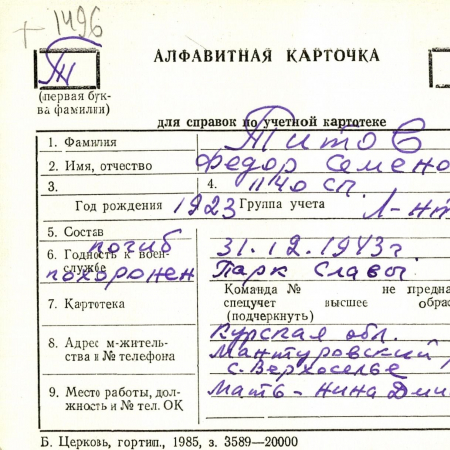 + 1496
АЛФАВИТНАЯ КАРТОЧКА
Т
(первая бук-
ва фамилии)
для справок по учетной картотеке
1. Фамилия Титов
2. Имя, отчество Федор Семено
3. 4. 1140 СП.
Год рождения 1923 Группа учета Л-нт
5. Состав
погиб 31.12.1943г
6. Годность к воен-
службе
похоронен Парк Славы
Команда № не предна
7. Картотека спецучет высшее обра
(подчеркнуть)
Курская обл.
8. Адрес м-житель-
ства и № телефона
Мантуровский р
с. Верхоселье
9. Место работы, дол-
жность и № тел. ОК
Мать - Нина Дми
Б. Церковь, гортип., 1985, з. 3589—20000